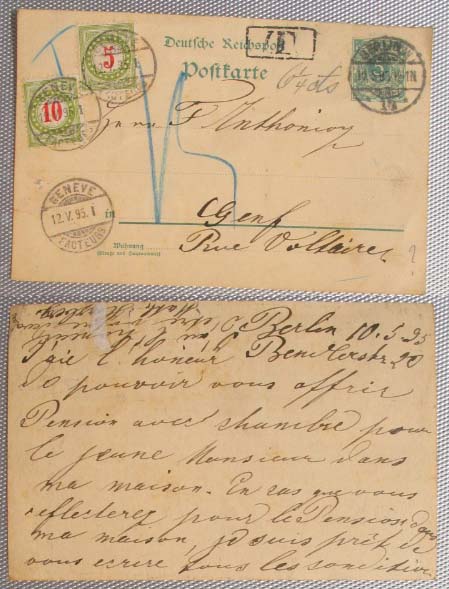 5
10
GENEVE
FACTEURS
Deutsche Reichspost
Postkarte
T
6¼ cts
BERLIN, W.
Herrn F. Anthonioz
15
GENEVE
12.V.95. I
FACTEURS
in
Genf
Rue Voltaire
Wohnung
(Straße und Hausnummer)
Berlin 10.5.95
J'aie l'honeur Bendlerstr. 20
de pouvoir vous offrir
Pension avec chambre pour
le jeune Monsieur dans
ma maison. En cas que vous
reflecterez pour le Pension dans
ma maison, je suis prêt de
vous ecrire tous les condition